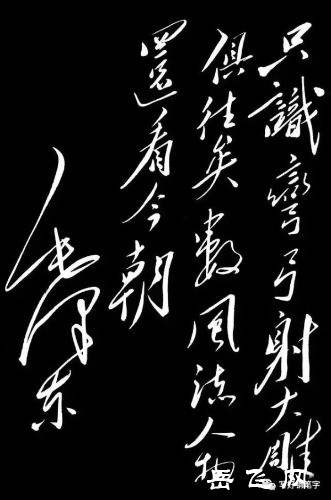 只識彎弓射大雕
俱往矣數風流人物
還看今朝
毛澤东
写好钢笔字
岳飞网